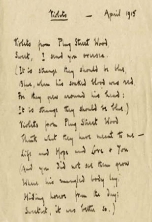 Violets — April 1915
Violets from Plug Street Wood
Sweet, I send you oversea.
(It is strange they should be blue,
Blue, when his soaked blood was red
For they grew around his head;
It is strange they should be blue.)
Violets from Plug Street Wood
Think what they have meant to me —
Life and Hope and Love & You
And you did not see them grow
Where his mangled body lay
Hiding horror from the day;
Sweetest, it was better so.